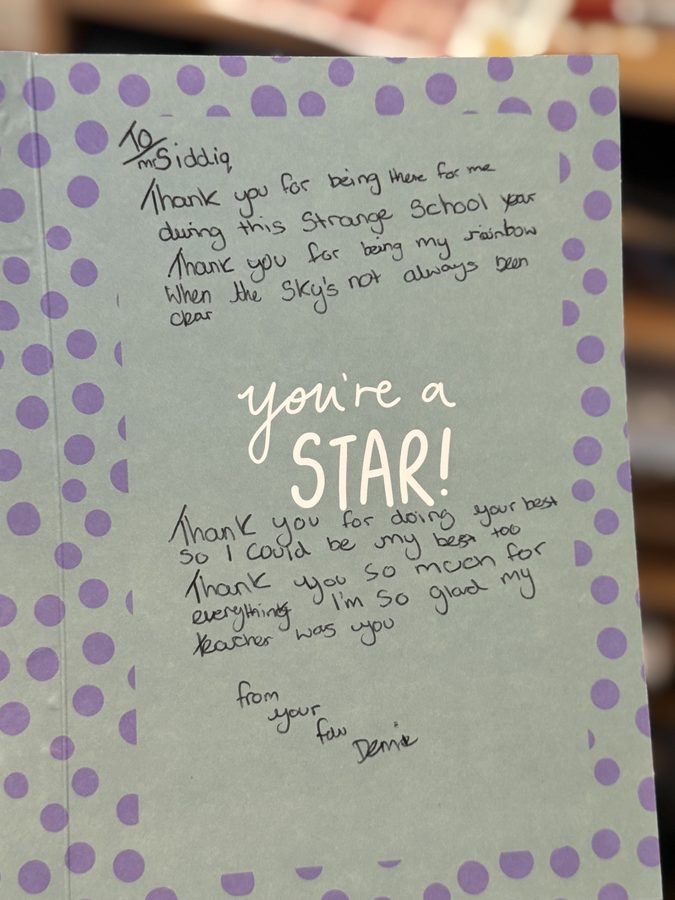 To
mr Siddiq
Thank you for being there for me
during this Strange School year
Thank you for being my rainbow
When the Sky's not always been
clear
you're a
STAR!
Thank you for doing your best
so I could be my best too
Thank you so much for
everything I'm so glad my
teacher was you
from
your
fav